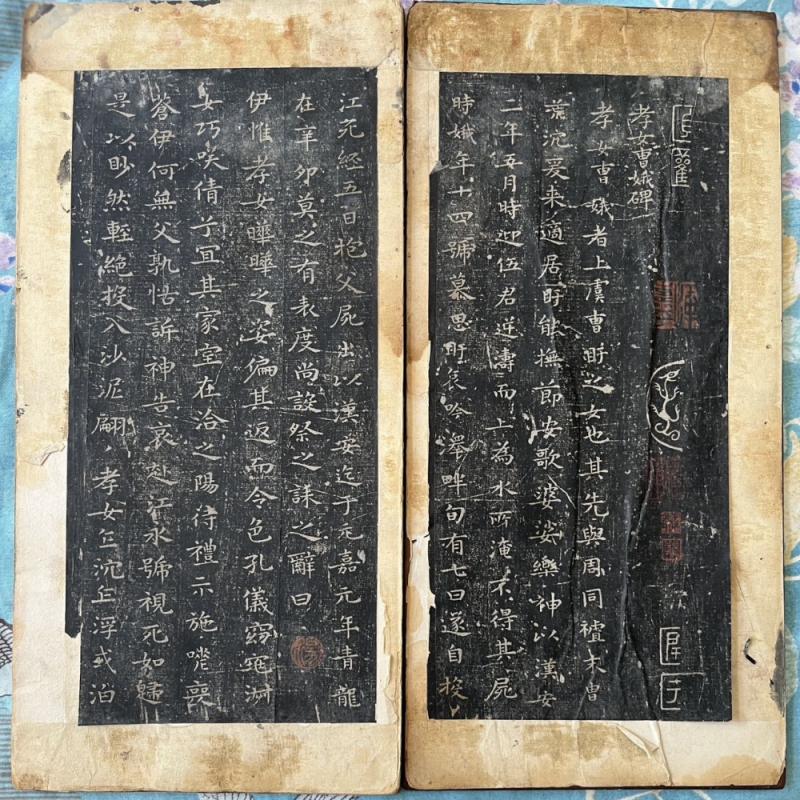 孝女曹娥碑
孝女曹娥者上虞曹盱之女也其先與周同祖末胄
荒沉爰来適居盱能撫節安歌婆娑樂神以漢安
二年五月時迎伍君逆濤而上為水所淹不得其屍
時娥年十四號慕思盱哀吟澤畔旬有七日遂自投
江死經五日抱父屍出以漢安迄于元嘉元年青龍
在辛卯莫之有表度尚設祭之誄之辭曰
伊惟孝女曄曄之姿偏其返而令色孔儀窈窕淑
女巧咲倩兮宜其家室在洽之陽待禮未施嗟喪
蒼伊何無父孰怙訴神告哀赴江永號視死如歸
是以眇然輕絕投入沙泥翩〻孝女乍沉乍浮或泊